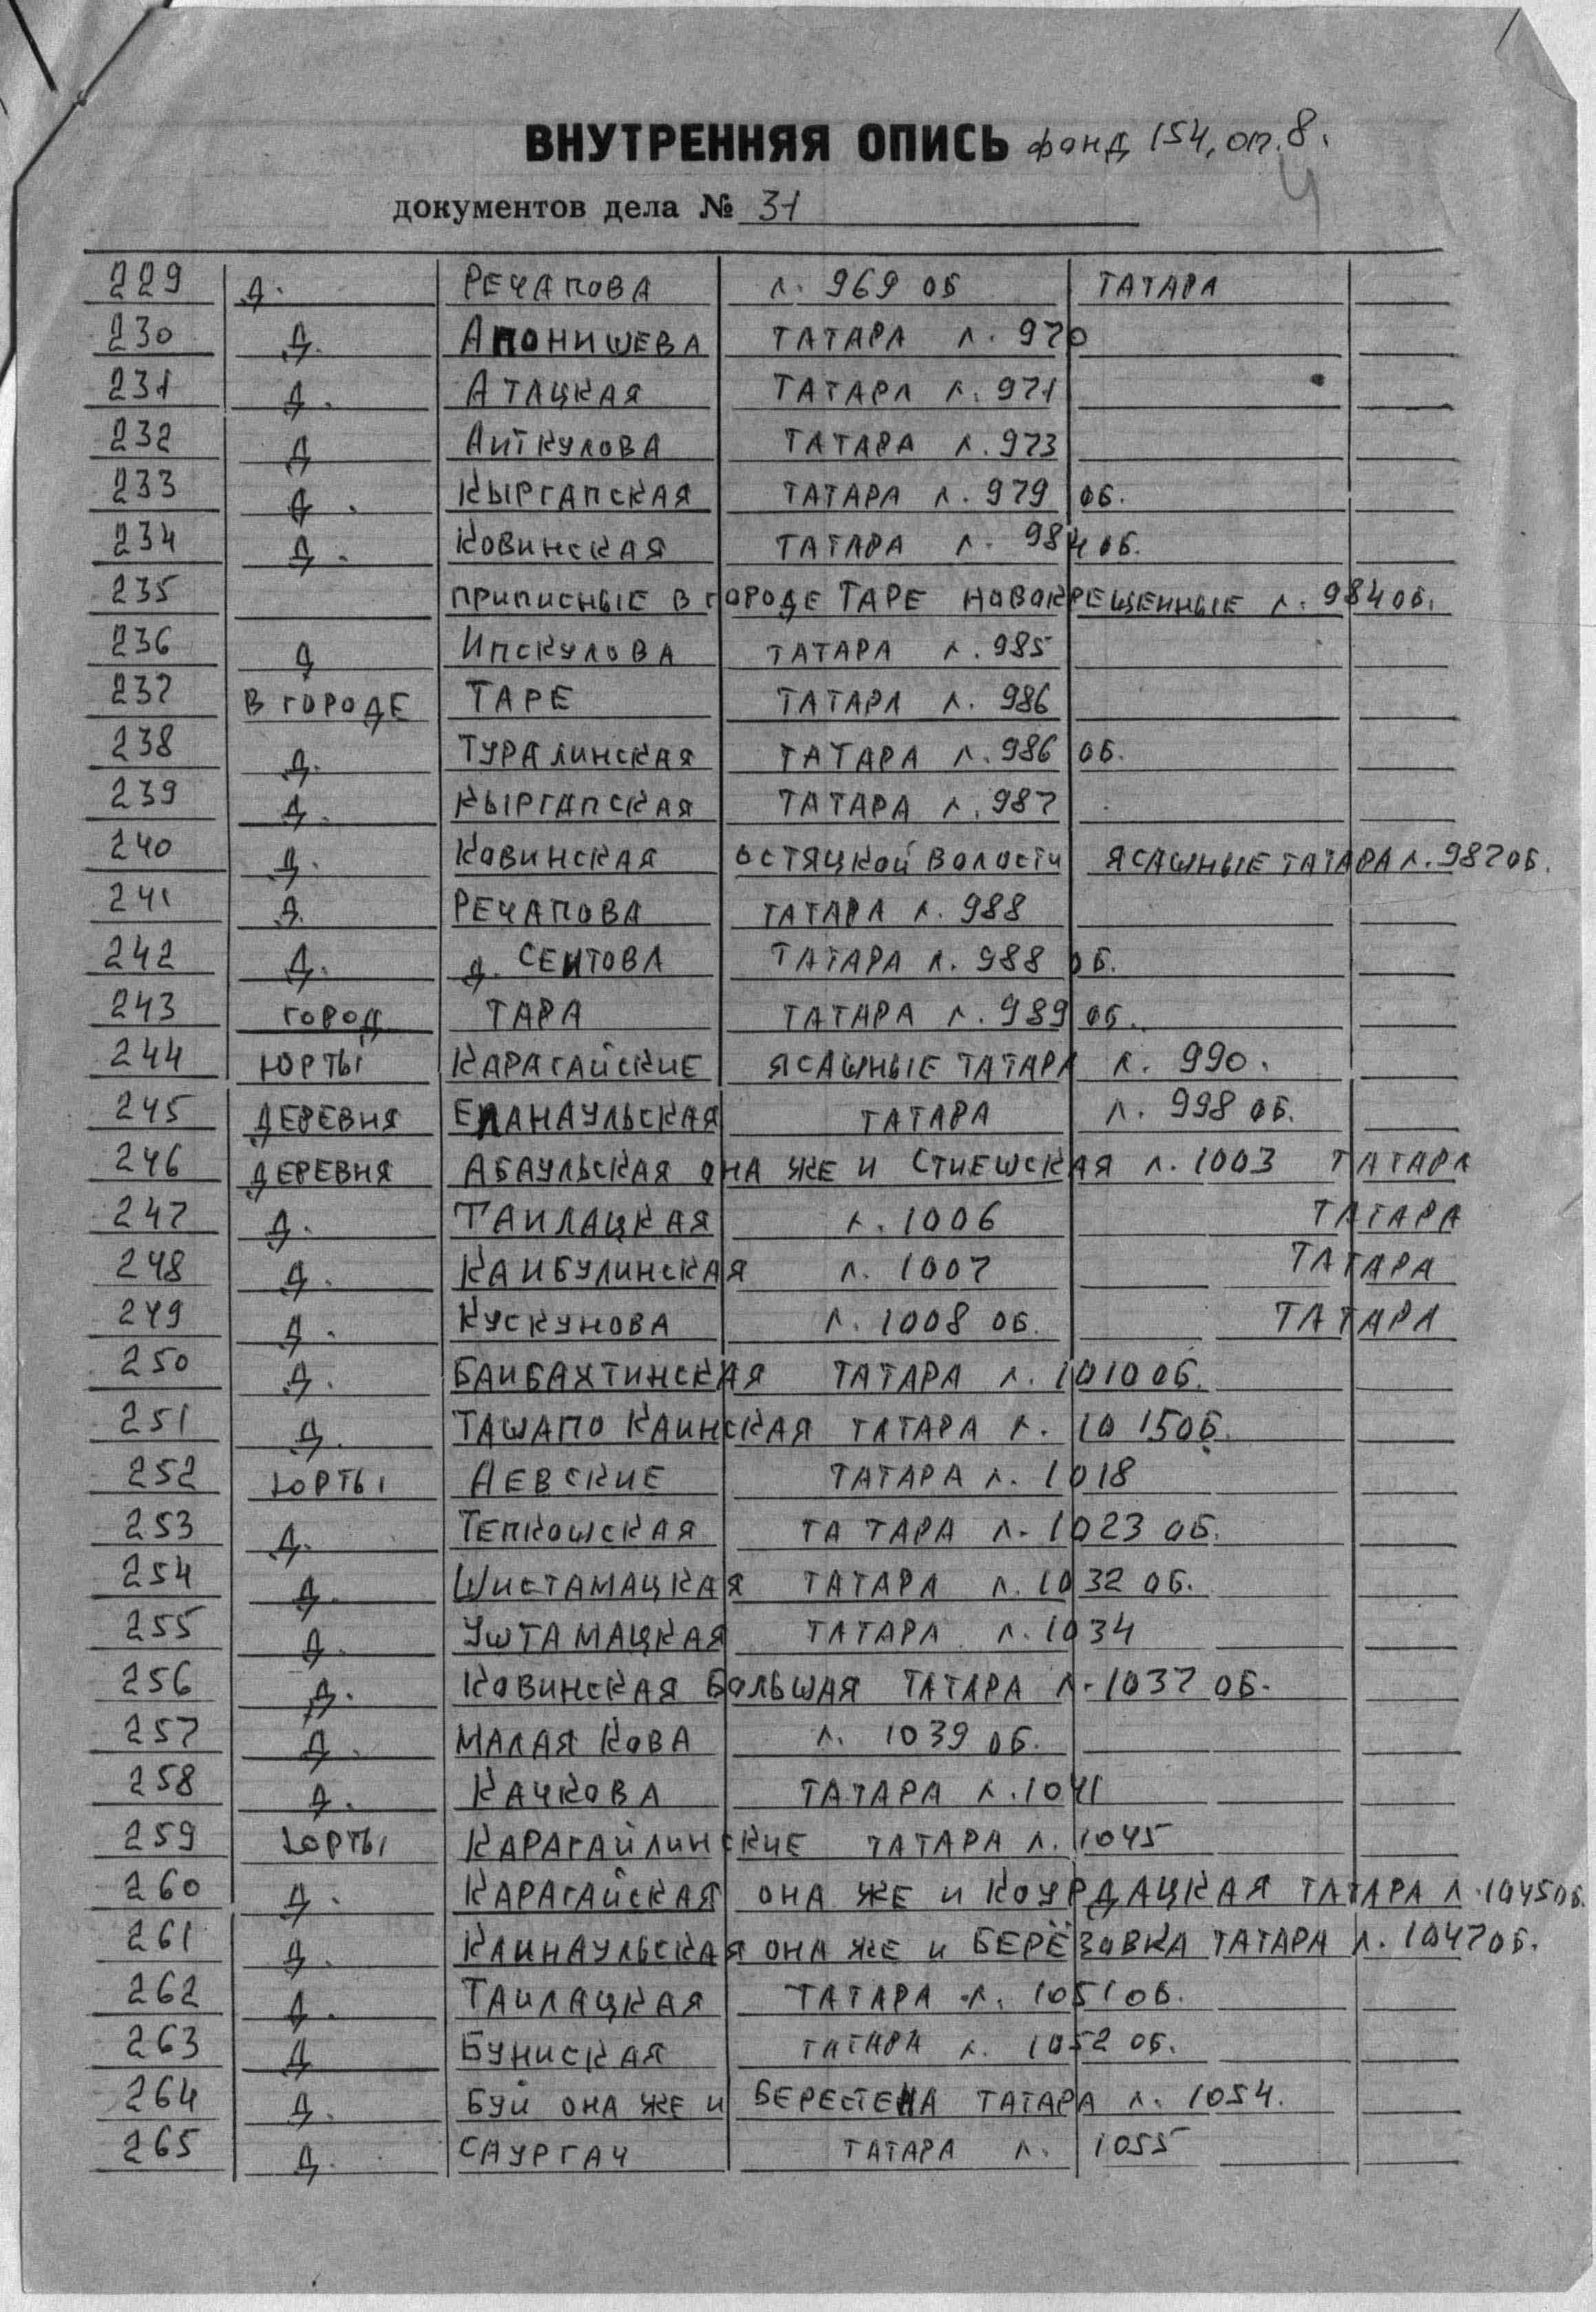 ВНУТРЕННЯЯ ОПИСЬ фонд 154, оп. 8.
4
документов дела № 31
229 Д. РЕЧАПОВА л. 969 ОБ ТАТАРА
230 Д. АПОНИШЕВА ТАТАРА л. 970
231 Д. АТАЦКАЯ ТАТАРА л. 971
232 Д АИТКУЛОВА ТАТАРА л. 973
233 Д. КЫРГАПСКАЯ ТАТАРА л. 979 ОБ.
234 Д. КОВИНСКАЯ ТАТАРА л. 984 ОБ.
235 ПРИПИСНЫЕ В ГОРОДЕ ТАРЕ НОВОКРЕЩЕННЫЕ л. 984 ОБ.
236 Д ИПСКУЛОВА ТАТАРА л. 985
237 В ГОРОДЕ ТАРЕ ТАТАРА л. 986
238 Д. ТУРАЛИНСКАЯ ТАТАРА л. 986 ОБ.
239 Д. КЫРГАПСКАЯ ТАТАРА л. 987
240 Д. КОВИНСКАЯ ОСТЯЦКОЙ ВОЛОСТИ ЯСАШНЫЕ ТАТАРА л. 987 ОБ.
241 Д. РЕЧАПОВА ТАТАРА л. 988
242 Д. Д. СЕИТОВА ТАТАРА л. 988 ОБ.
243 ГОРОД ТАРА ТАТАРА л. 989 ОБ.
244 ЮРТЫ КАРАГАЙСКИЕ ЯСАШНЫЕ ТАТАРА л. 990.
245 ДЕРЕВНЯ ЕЛАНАУЛЬСКАЯ ТАТАРА л. 998 ОБ.
246 ДЕРЕВНЯ АБАУЛЬСКАЯ ОНА ЖЕ И СТИЕШСКАЯ л. 1003 ТАТАРА
247 Д. ТАИЛАЦКАЯ л. 1006 ТАТАРА
248 Д. КАИБУЛИНСКАЯ л. 1007 ТАТАРА
249 Д. КУСКУНОВА л. 1008 ОБ. ТАТАРА
250 Д. БАИБАХТИНСКАЯ ТАТАРА л. 1010 ОБ.
251 Д. ТАШАПО КАИНСКАЯ ТАТАРА л. 1015 ОБ.
252 ЮРТЫ АЕВСКИЕ ТАТАРА л. 1018
253 Д. ТЕПКОШСКАЯ ТАТАРА л. 1023 ОБ.
254 Д. ШИСТАМАЦКАЯ ТАТАРА л. 1032 ОБ.
255 Д. УШТАМАЦКАЯ ТАТАРА л. 1034
256 Д. КОВИНСКАЯ БОЛЬШАЯ ТАТАРА л. 1037 ОБ.
257 Д. МАЛАЯ КОВА л. 1039 ОБ.
258 Д. КАЧКОВА ТАТАРА л. 1041
259 ЮРТЫ КАРАГАЙЛИНСКИЕ ТАТАРА л. 1045
260 Д. КАРАГАЙСКАЯ ОНА ЖЕ И КОУРДАЦКАЯ ТАТАРА л. 1045 ОБ.
261 Д. КАИНАУЛЬСКАЯ ОНА ЖЕ И БЕРЁЗОВКА ТАТАРА л. 1047 ОБ.
262 Д. ТАИЛАЦКАЯ ТАТАРА л. 1051 ОБ.
263 Д БУНИСКАЯ ТАТАРА л. 1052 ОБ.
264 Д. БУЙ ОНА ЖЕ И БЕРЕСТЕНА ТАТАРА л. 1054.
265 Д. САУРГАЧ ТАТАРА л. 1055